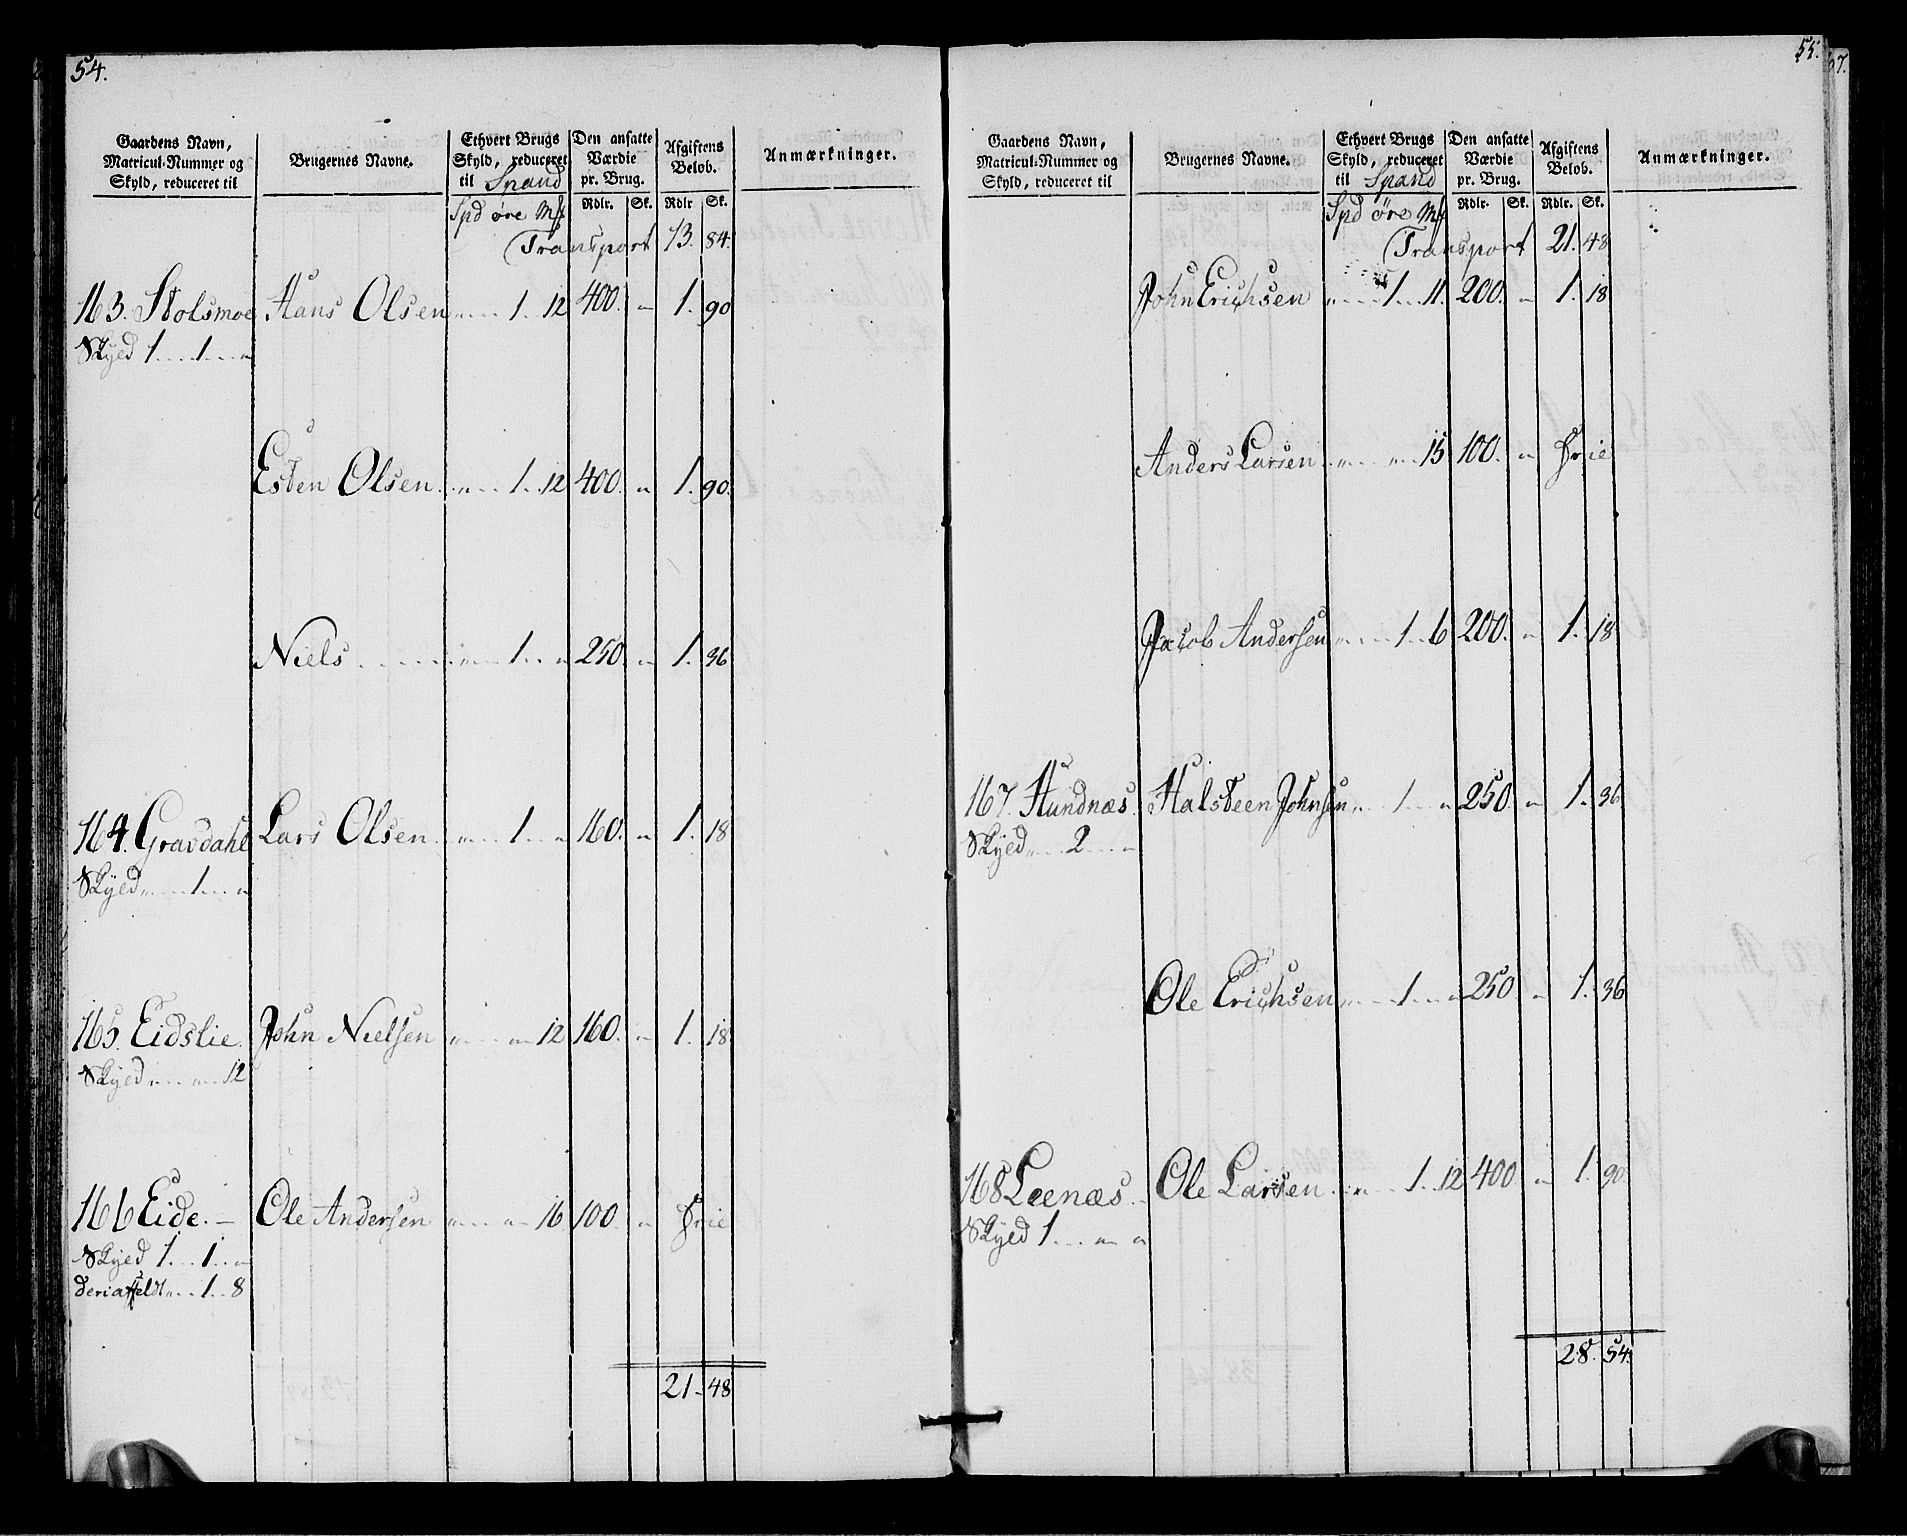 54.
Gaardens Navn, Matricul-Nummer og Skyld, reduceret til
Brugernes Navne.
Ethvert Brugs Skyld, reduceret til Spand
Den ansatte Værdie pr. Brug.
Afgiftens Beløb.
Anmærkninger.
Spd øre Mk Rdlr. Sk. Rdlr Sk.
Transport 13. 84.
163. Stolsmoe Hans Olsen „ 1. 12 400. „ 1. 90
Skyed 1 . . 1 . . „
Esten Olsen. „ 1. 12 400. „ 1. 90.
Niels „ 1. „ 250. „ 1. 36
164. Gravdahl Lars Olsen „ 1 „ 160. „ 1. 18
Skyed „ 1 „
165. Eidslie John Nielsen „ „ 12 160. „ 1. 18
Skyed „ „ 12
166 Eide. Ole Andersen „ „ 16 100. „ frie
Skyed 1 . . 1 . . „
deri „ 1 . . 8
21. 48
55.
57.
Gaardens Navn, Matricul-Nummer og Skyld, reduceret til
Brugernes Navne.
Ethvert Brugs Skyld, reduceret til Spand
Den ansatte Værdie pr. Brug.
Afgiftens Beløb.
Anmærkninger.
Spd øre Mk Rdlr. Sk. Rdlr. Sk.
Transport 21. 48
John Erichsen „ 1. 11. 200. „ 1. 18
Anders Larsen „ „ 15 100. „ frie
Jacob Andersen „ 1. 6 200. „ 1. 18
167. Hundnæs. Halsteen Johnsen „ 1 „ 250. „ 1. 36
Skyed „ 2 „
Ole Erichsen „ 1 „ 250 „ 1. 36
168 Leenæs. Ole Larsen „ 1. 12 400 „ 1. 90.
Skyed 1 . . „ „
28. 54.